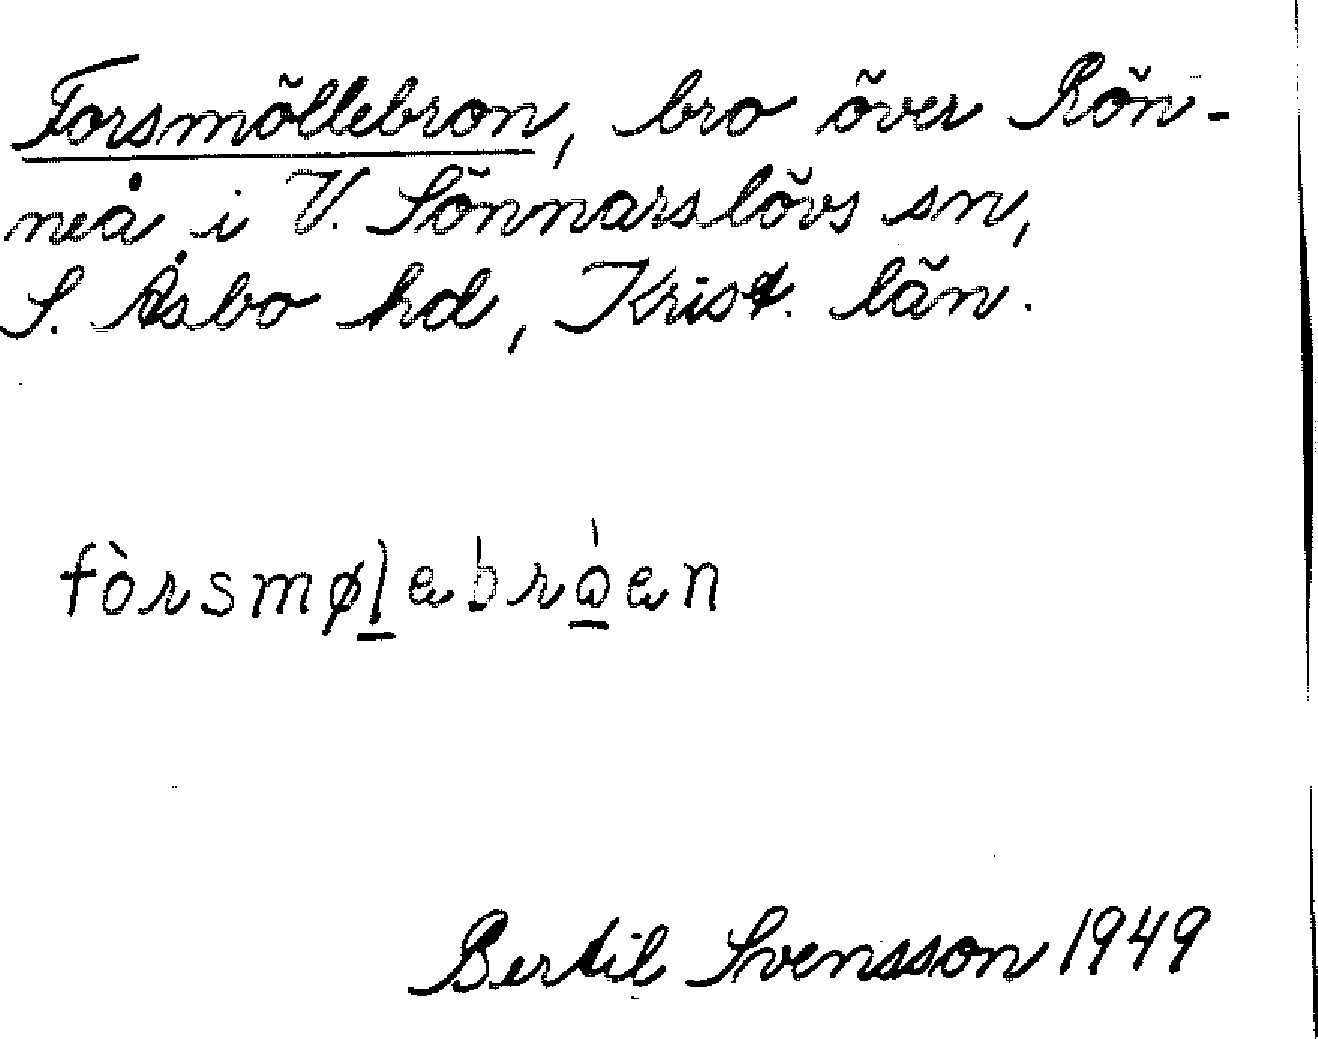 Forsmöllebron, bro över Rön-
neå i V. Sönnarslövs sn,
S. Åsbo hd, Krist. län.
fòrsmøl̲abrå̲an
Bertil Svensson 1949